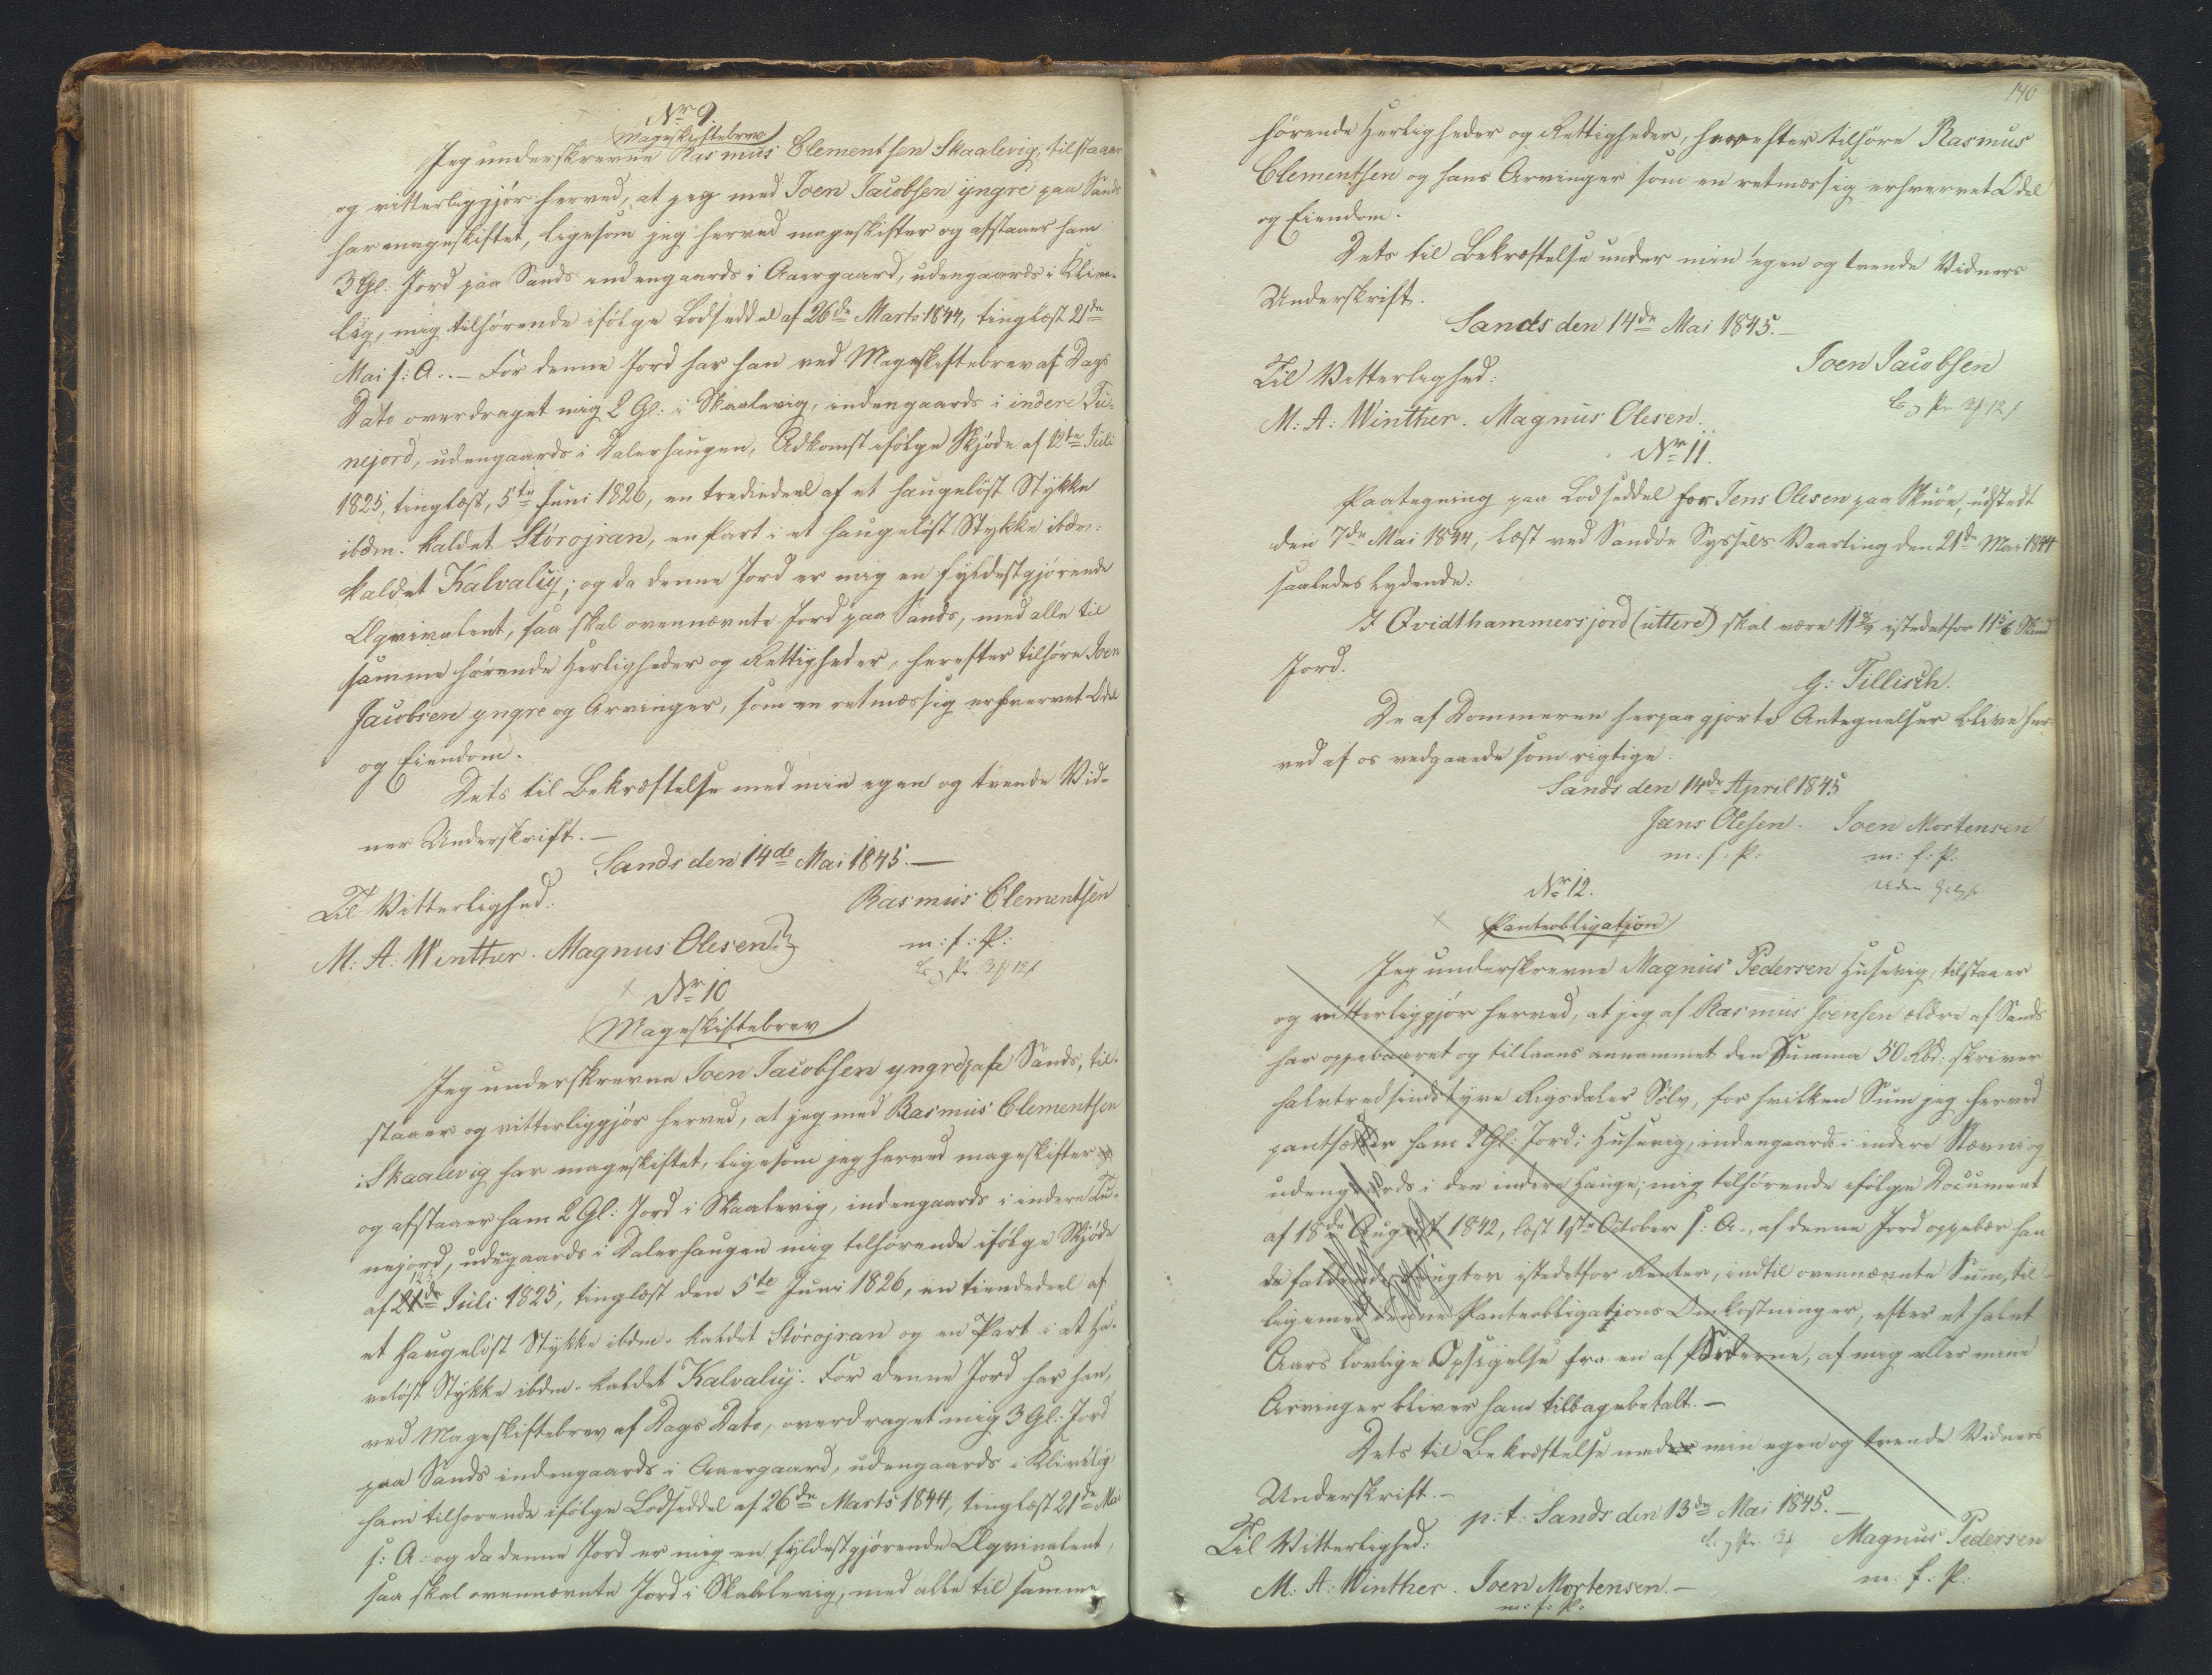 Nr 9.
Mageskiftebrev
Jeg underskrevne Rasmus Clementsen Skaalevig, tilstaaer
og vitterliggjør herved, at jeg med Joen Jacobsen yngre paa Sands
har mageskiftet, ligesom jeg herved mageskifter og afstaaer ham
3 Gl: Jord paa Sands indengaards i Aaergaard, udengaards i Klive-
lÿg, mig tilhørende ifølge Lodseddel af 26de Marts 1844, tinglæst 21de
Mai s: A. – For denne Jord har han ved Mageskiftebrev af Dags
Dato overdraget mig 2 Gl: i Skaalevig, indengaards i indere Tu-
nejord, udengaards i Dalerhaugen, Adkomst ifølge Skjøde af 12te Juli
1825, tinglæst, 5te Juni 1826, en trediedeel af et haugeløst Stykke
ibdm. kaldet Stórojran, en Part i et haugeløst Stykke ibdm:
kaldet Kalvalij; og da denne Jord er mig en fyldestgjørende
Æqvivalent, saa skal ovennævnte Jord paa Sands, med alle til
samme hørende Herligheder og Rettigheder, herefter tilhøre Joen
Jacobsen yngre og Arvinger, som en retmæssig erhvervet Odel
og Eiendom.
Dets til Bekræftelse med min egen og tvende Vid-
ner Underskrift. –
Sands den 14de Mai 1845. –
Til Vitterlighed:
Rasmus Clementsen
M: A: Winther. Magnus Olesen
m: f: P:
Nr 10
Mageskiftebrev
Jeg underskrevne Joen Jacobsen yngre paa Sands, til-
staaer og vitterliggjør herved, at jeg med Rasmus Clementsen
i Skaalevig har mageskiftet, ligesom jeg herved mageskifter og
og afstaaer ham 2 Gl: Jord i Skaalevig, indengaards i indere Tu-
nejord, udengaards i Dalerhaugen mig tilhørende ifølge Skjøde
12
af 21de Juli 1825, tinglæst den 5te Juni 1826, en tiendedeel af
et Haugeløst Stykke ibdm. kaldet Stórojran og en Part i et Ha-
veløst Stykke ibdm. kaldet Kalvalij. For denne Jord har han,
ved Mageskiftebrev af Dags Dato, overdraget mig 3 Gl: Jord
paa Sands indengaards i Aaergaard, udengaards i Klivelÿg
ham tilhørende ifølge Lodseddel af 26de Marts 1844, tinglæst 21de Mai
s: A: og da denne Jord er mig en fyldestgjørende Æqvivalent,
saa skal ovennævnte Jord i Skaalevig, med alle til samme
140
hørende Herligheder og Rettigheder, herefter tilhøre Rasmus
Clementsen og hans Arvinger som en retmæssig erhvervet Odel
og Eiendom.
Dets til Bekræftelse under min egen og tvende Vidners
Underskrift.
Sands den 14de Mai 1845. –
Til Vitterlighed:
Joen Jacobsen
M: A: Winther. Magnus Olesen.
Nr 11.
Paategning paa Lodseddel for Jens Olesen paa Skuöe, udstedt
den 7de Mai 1844, læst ved Sandøe Syssels Vaarting den 21de Mai 1844
saaledes lydende:
I Qvidthammersjord (uttere) skal være 11 istedetfor 11 5/6 Skind
Jord.
G: Tillisch.
De af Dommeren herpaa gjorte Antegnelser blive her-
ved af os vedgaaede som rigtige.
Sands den 14de April 1845
Jæns Olesen. Joen Mortensen
m: f: P: m: f: P:
Nr 12.
Panteobligation
Jeg underskrevne Magnus Pedersen Husevig, tilstaaer
og vitterliggjør herved, at jeg af Rasmus Joensen ældre af Sands
har oppebaaret og tillaans annammet den Summa 50 Rbd: skriver
halvtredsindstyve Rigsdaler Sølv, for hvilken Sum jeg herved
pantsætter ham 2 Gl: Jord i Husevig, indengaards i indere Stævnig
udengaards i den indere Hauge; mig tilhørende ifølge Document
af 18de August 1842, læst 1ste October s: A., af denne Jord oppebær han
de faldende Frugter istedetfor Renter, indtil ovennævnte Sum, til-
ligemed denne Panteobligations Omkostninger, efter et halvt
Aars lovlige Opsigelse fra en af Siderne, af mig eller mine
Arvinger bliver ham tilbagebetalt. –
Dets til Bekræftelse med min egen og tvende Vidners
Underskrift. –
p: t: Sands den 13de Mai 1845. –
Til Vitterlighed:
Magnus Pedersen
M: A: Winther. Joen Mortensen. –
m: f: P:
m: f: P: